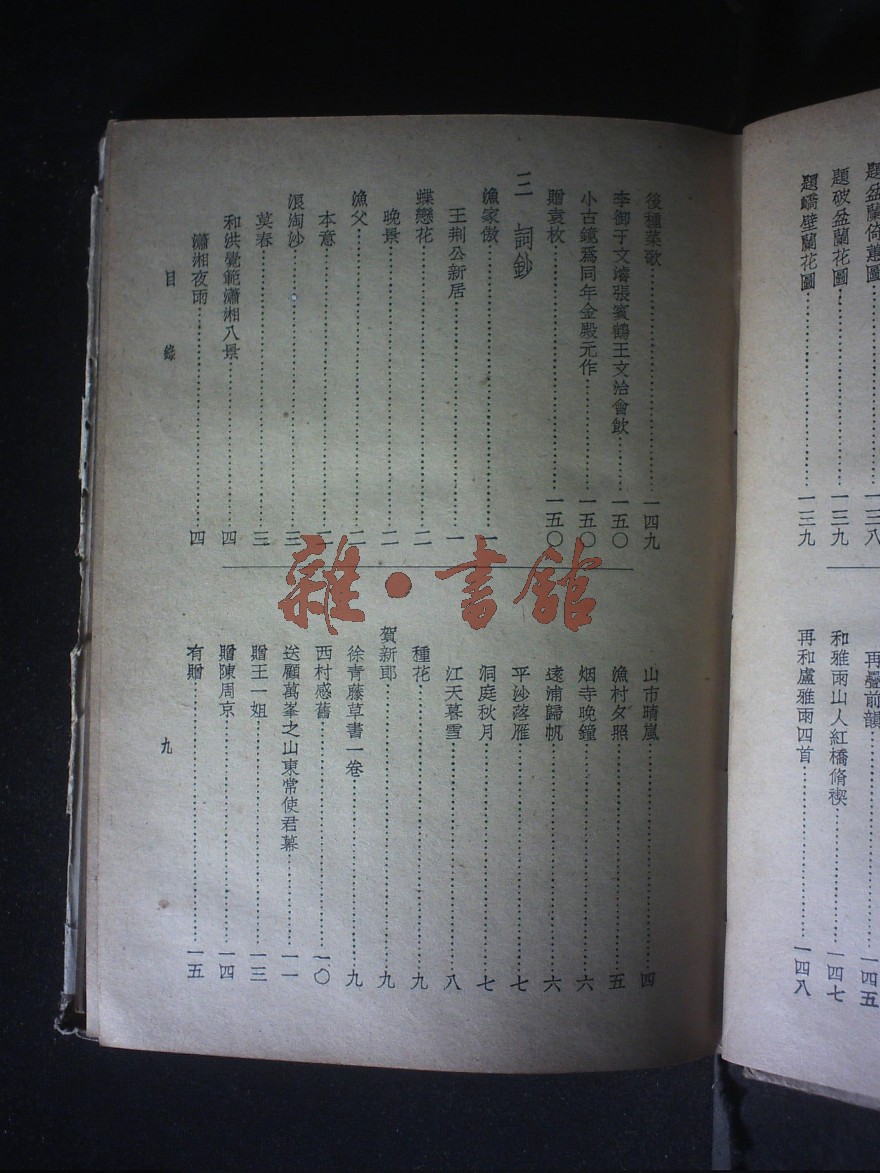 題盆蘭倚蕙圖……一三八
題破盆蘭花圖……一三九
題嶠壁蘭花圖……一三九
再疊前韻……一四五
和雅雨山人紅橋脩禊……一四七
再和盧雅雨四首……一四八
後種菜歌……一四九
李御于文濬張賓鶴王文治會飲……一五〇
小古鏡爲同年金殿元作……一五〇
贈袁枚……一五〇
三 詞鈔
漁家傲……一
王荆公新居……一
蝶戀花……二
晚景……二
漁父……二
本意……二
浪淘沙……三
莫春……三
和洪覺範瀟湘八景……四
瀟湘夜雨……四
山市晴嵐……四
漁村夕照……五
烟寺晚鐘……六
遠浦歸帆……六
平沙落雁……七
洞庭秋月……七
江天暮雪……八
種花……九
賀新郎……九
徐青藤草書一卷……九
西村感舊……一〇
送顧萬峯之山東常使君幕……一一
贈王一姐……一三
贈陳周京……一四
有贈……一五
目錄
九
雜·書館